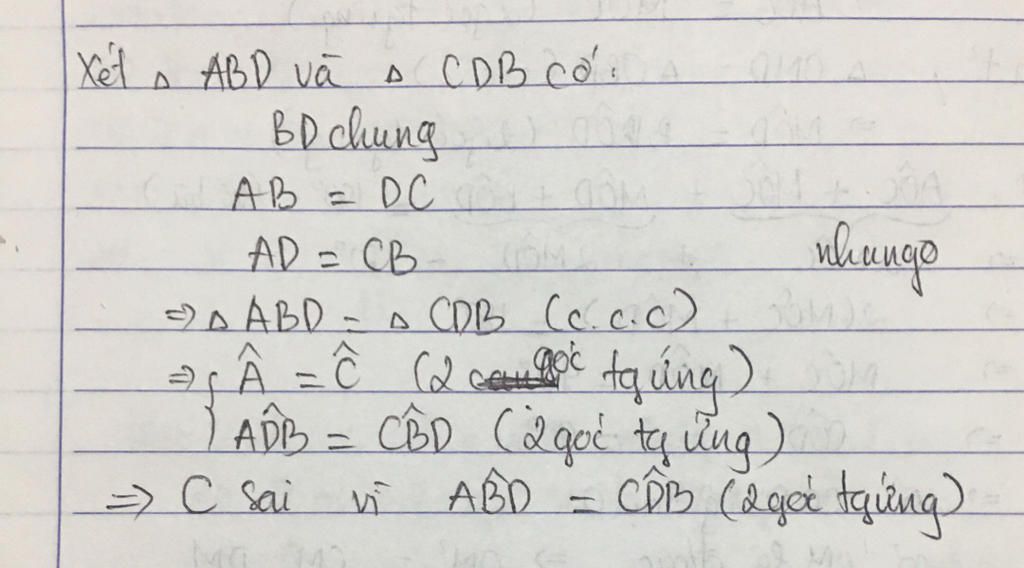 Xét △ ABD và △ CDB có:
BD chung
AB = DC
AD = CB
nhungo
⇒ △ ABD = △ CDB (c.c.c)
⇒ { Â = Ĉ (2 góc tg ứng)
AD̂B = CB̂D (2 góc tg ứng)
⇒ C sai vì AB̂D = CD̂B (2 góc tg ứng)